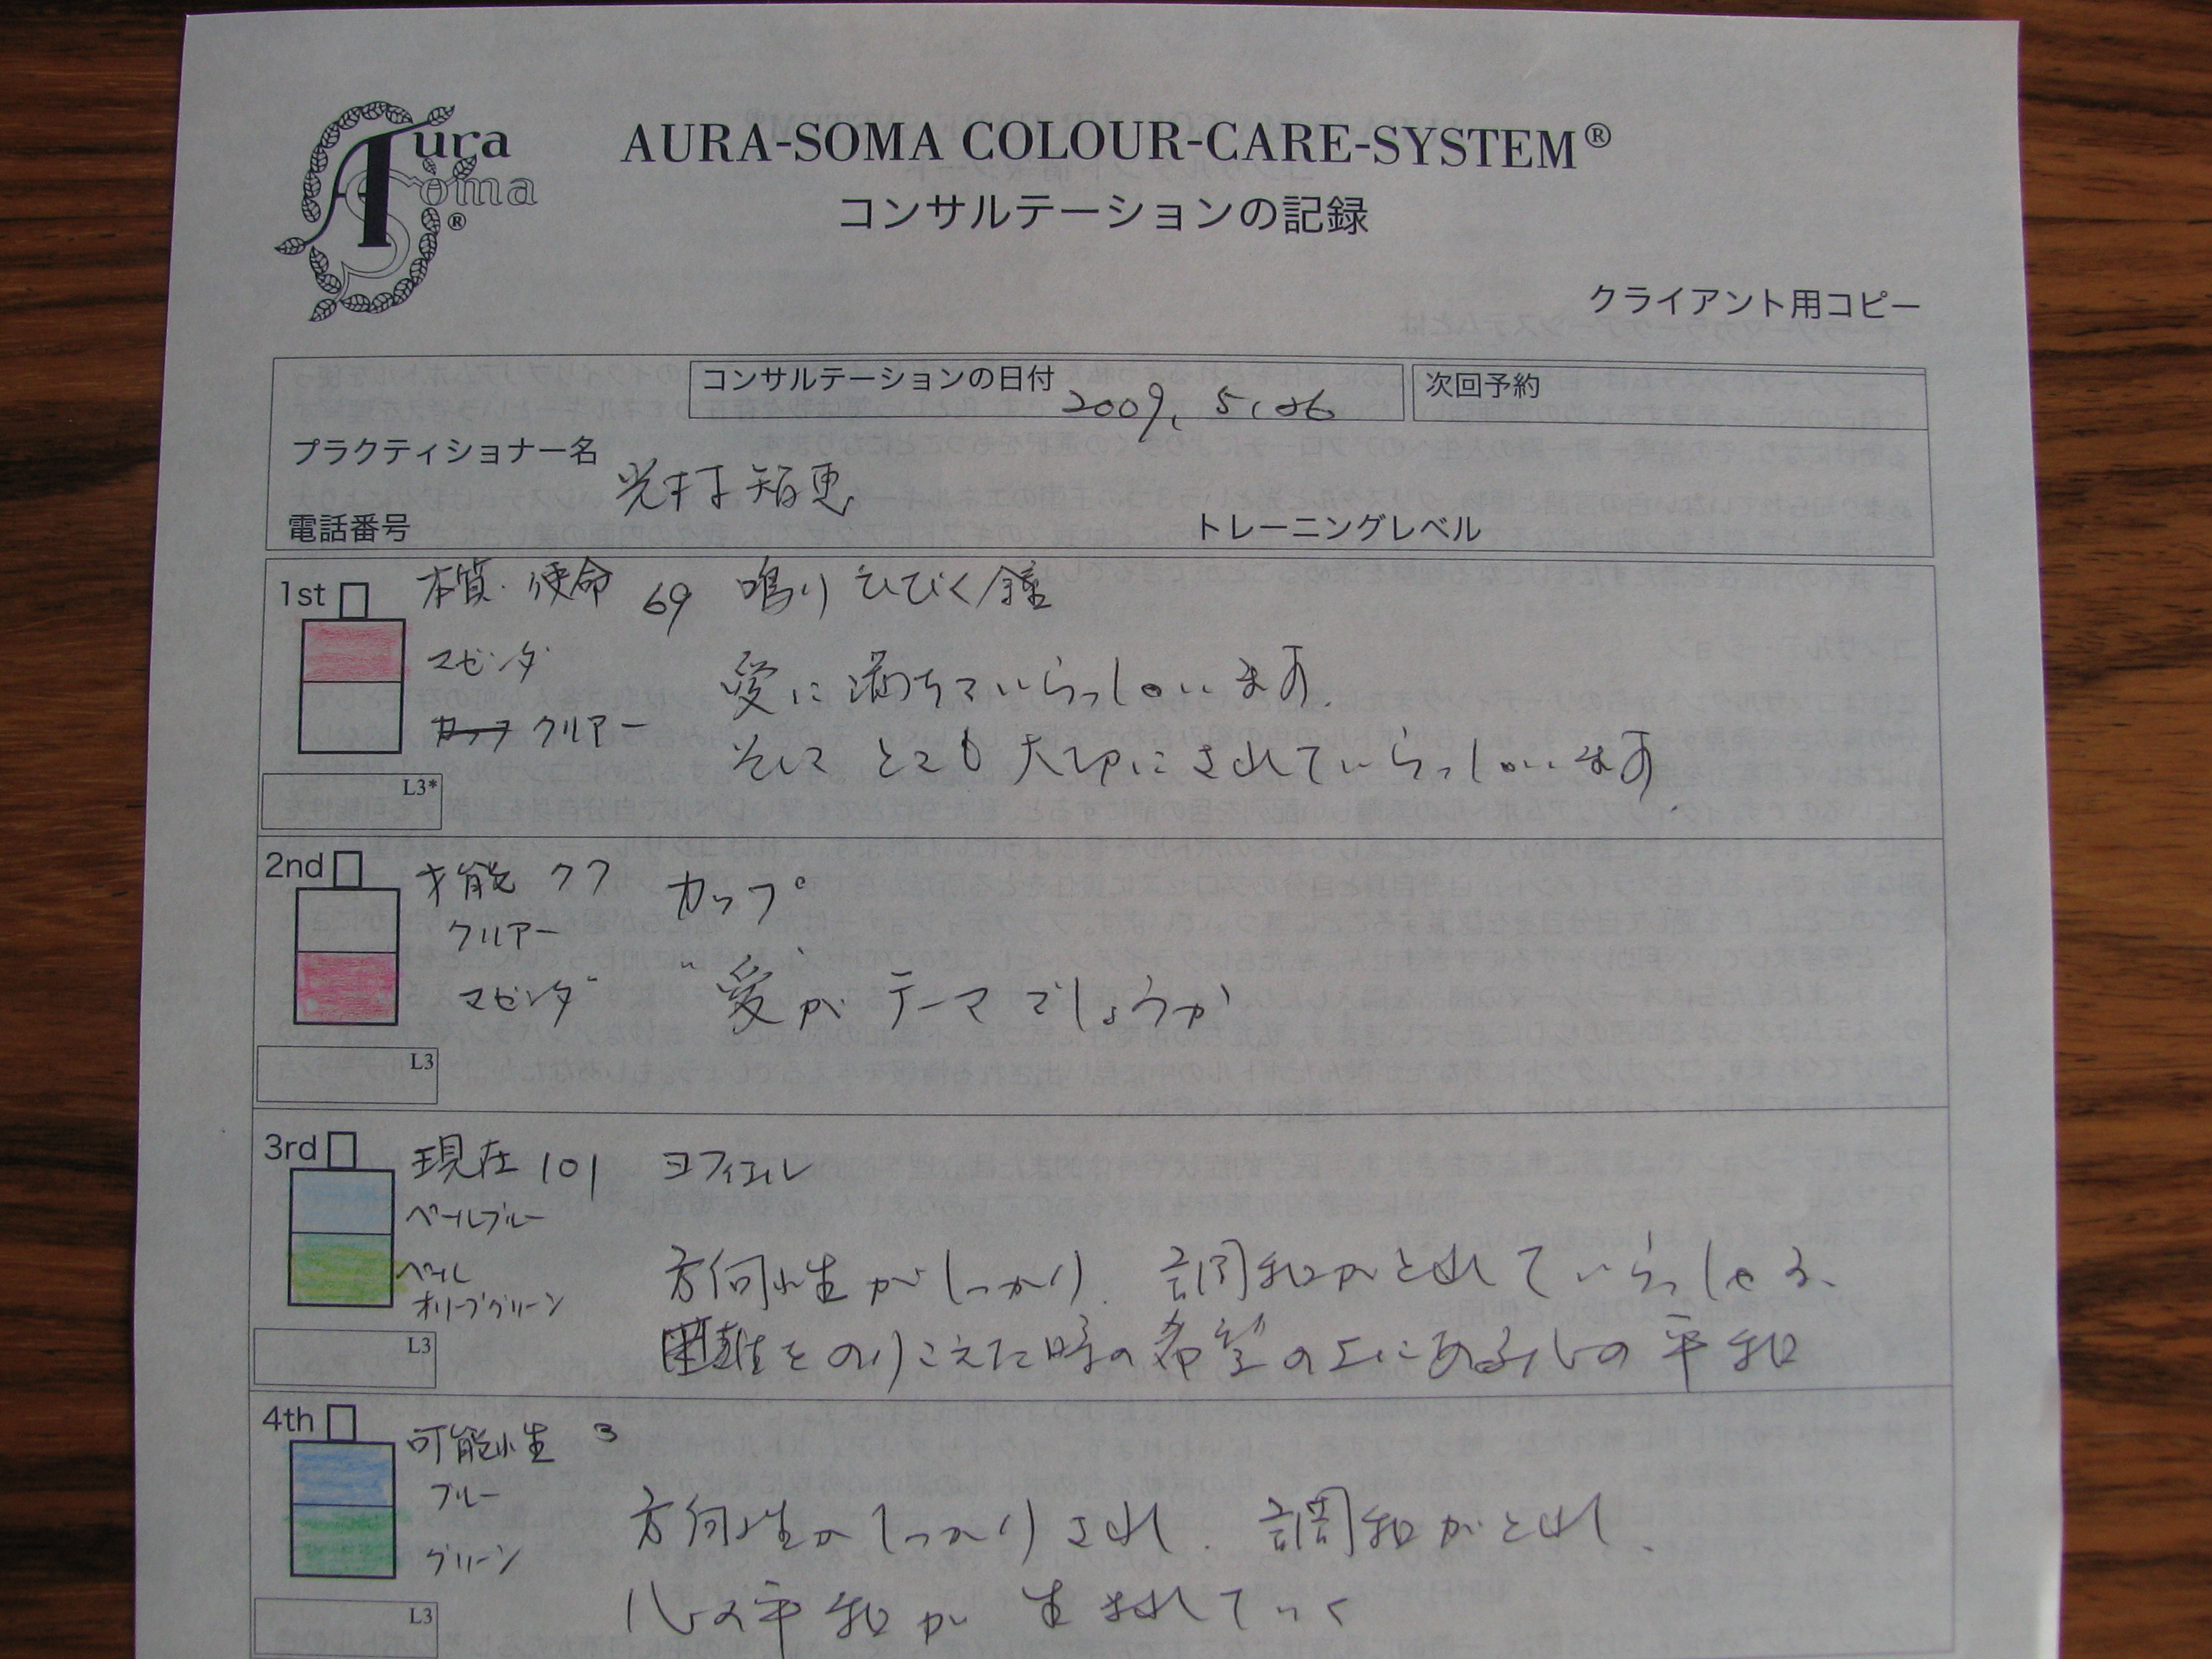 Aura
Soma
®
AURA-SOMA COLOUR-CARE-SYSTEM®
コンサルテーションの記録
クライアント用コピー
コンサルテーションの日付 2009. 5.26
次回予約
プラクティショナー名
光村 知恵
電話番号
トレーニングレベル
1st 本質・使命 69 鳴りひびく鐘
マゼンダ
愛に満ちていらっしゃいます.
クリアー
そして とても 大切にされていらっしゃいます.
L3*
2nd 才能 77 カップ
クリアー
マゼンダ
"愛"が テーマでしょうか
L3
3rd 現在 101 ヨフィエル
ペールブルー
ペール
オリーブグリーン
方向性がしっかり. 調和がとれていらっしゃる、
困難をのりこえた時の希望の上にある心の平和
L3
4th 可能性 3
ブルー
グリーン
方向性がしっかりされ. 調和がとれ、
心の平和が 生まれていく
L3